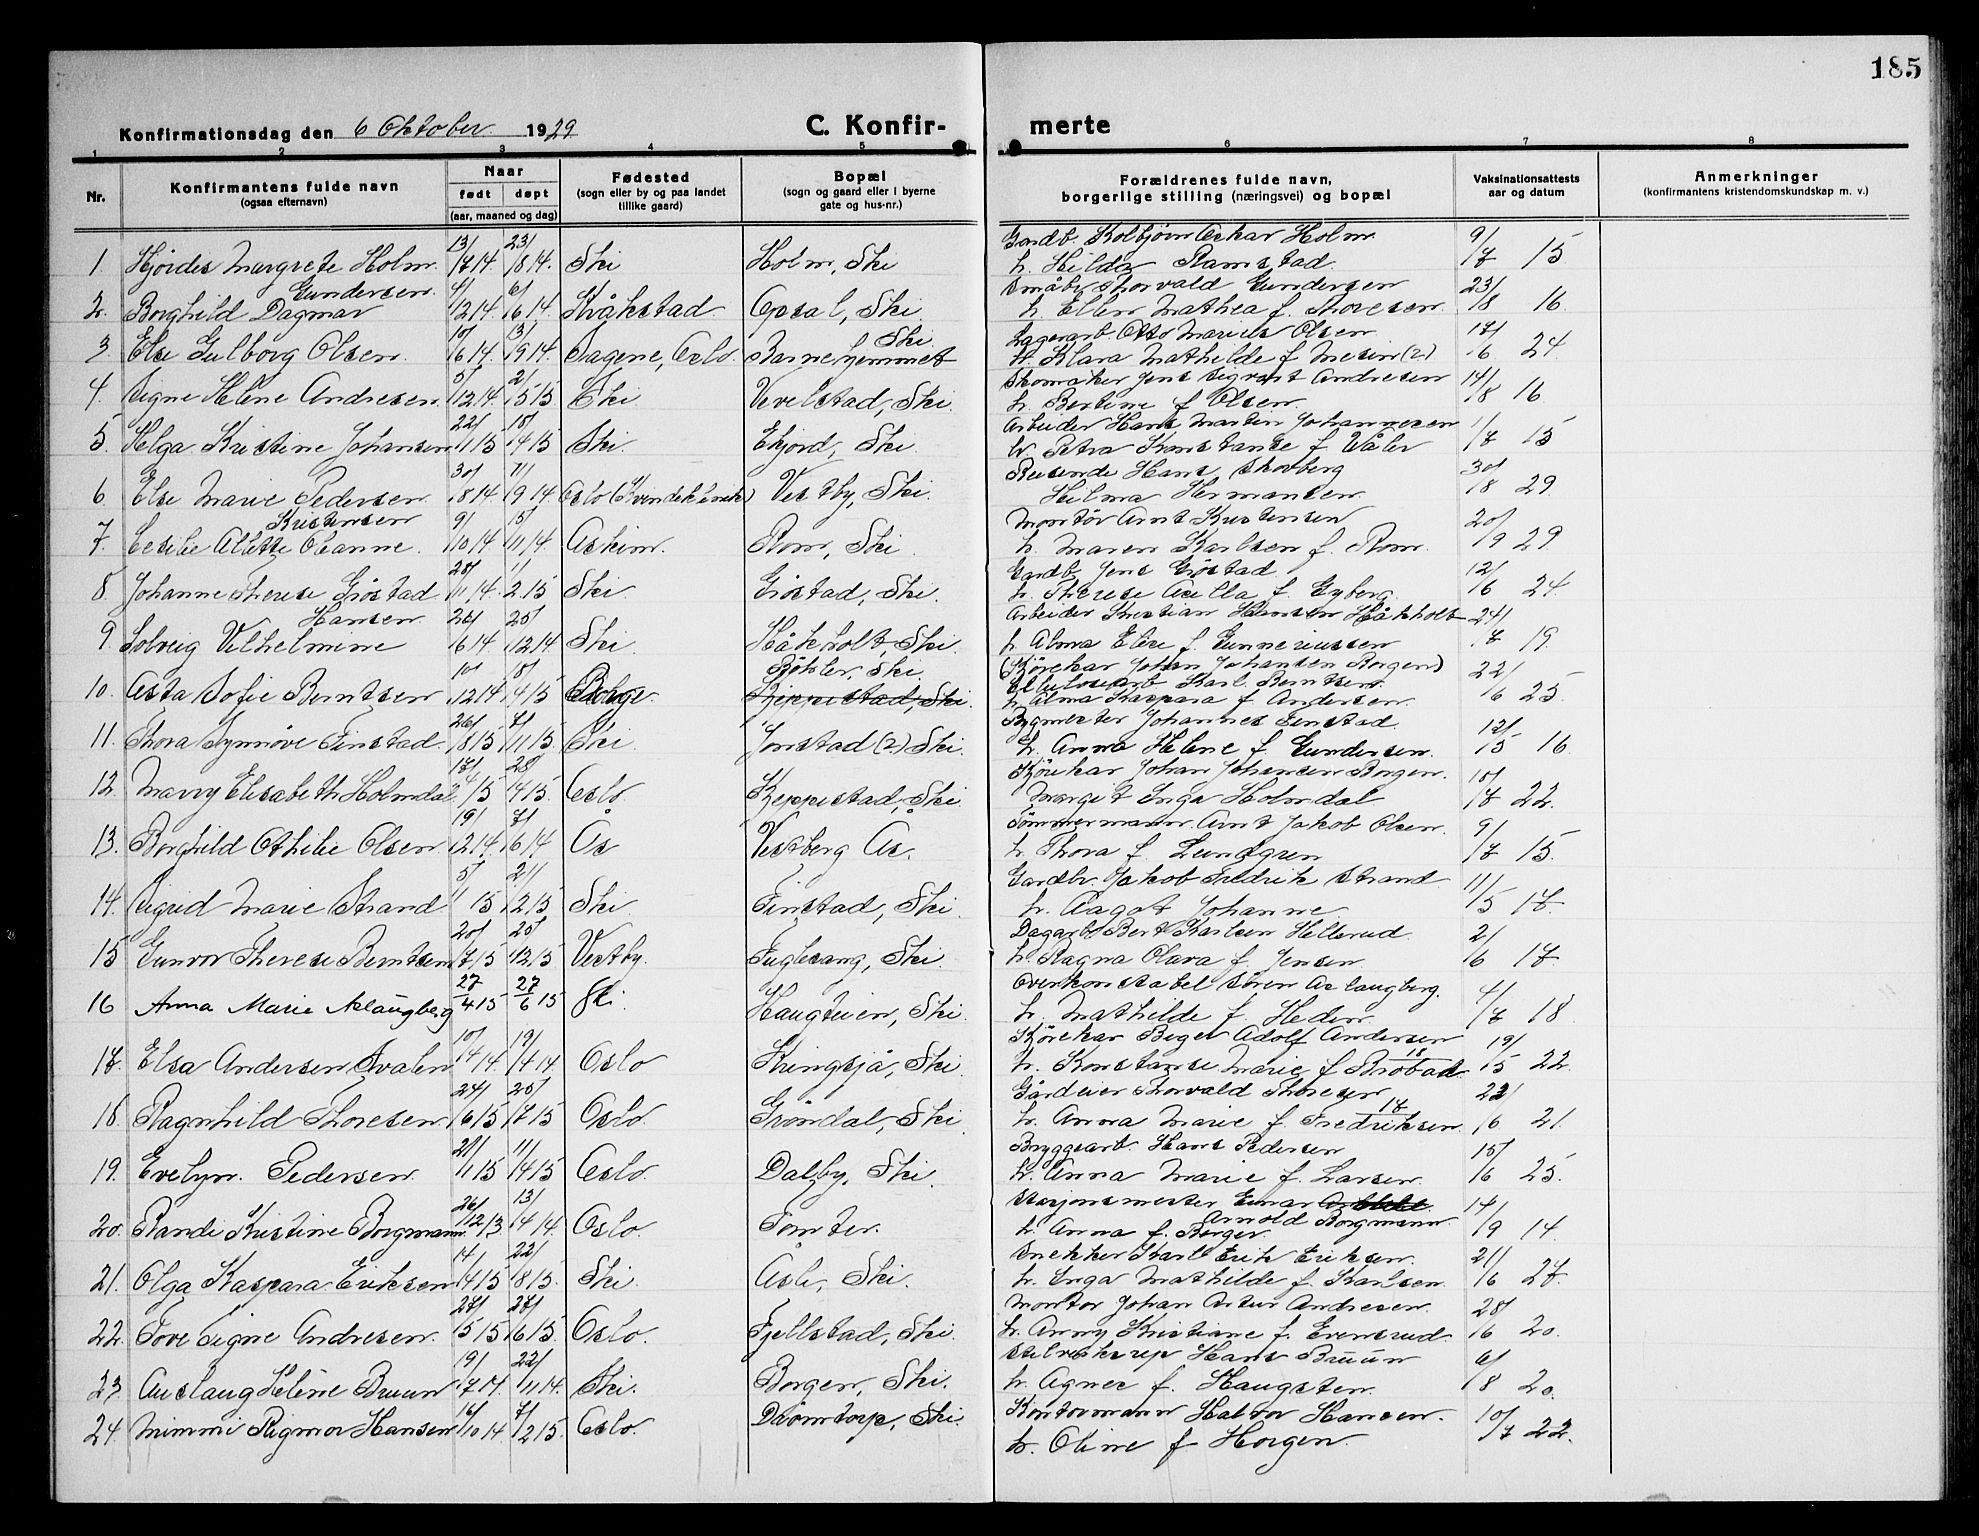 185
Konfirmationsdag den 6 Oktober 1929
C. Konfir- merte
1 2 3 4 5 6 7 8
Nr.
Konfirmantens fulde navn
(ogsaa efternavn)
Naar
født døpt
(aar, maaned og dag)
Fødested
(sogn eller by og paa landet
tillike gaard)
Bopæl
(sogn og gaard eller i byerne
gate og hus-nr.)
Forældrenes fulde navn,
borgerlige stilling (næringsvei) og bopæl
Vaksinationsattests
aar og datum
Anmerkninger
(konfirmantens kristendomskundskap m. v.)
Gardb. Kolbjørn Oskar Holm 9/
1 Hjørdis Margrete Holm 13/7 14. 23/8 14. Ski Holm, Ski h. Hilda Ramstad 7 15
Gundersen Småbr. Thorvald Gundersen 23/
2. Borghild Dagmar 4/12 14 6/6 14 Kråkstad Opsal, Ski h. Ellen Mathea f. Thoresen 8 16.
Ski. Lagerarb. Otto Marius Olsen 17/
3. Else Gulborg Olsen. 10/6 14. 13/9 14. Sagene, Oslo Barnehjemmet h. Klara Mathilde f. (2) 6 24.
Skomaker Jens Sigvart Andresen 14/
4. Signe Helene Andresen. 5/12 14. 2/5 15 Ski Vevelstad, Ski. h. Bertine f. Olsen. 8 16
Arbeider Hans Martin Johannesen 1/
5. Helga Kristine Johansen 22/11 15 18/4 15 Ski. Ekjord, Ski. h. Petra Konstanse f. Våler 7 15
Reisende Hans Skovberg 30/
6. Else Marie Pedersen. 30/8 14. 11/9 14. Oslo (Kvindeklinik) Vestby, Ski. Hilma Hermansen. 8 29.
Kristensen Montør Arnt Kristensen 20/
7. Cecilie Alette Oleanne. 9/10 14 15/11 14. Askim. Rom, Ski h. Maren Karlsen f. Rom. 9 29
Gardb. Jens Grøstad 12/
8. Johanne Therese Grøstad 28/11 14. 1/2 15 Ski Grøstad, Ski. h. Therese Axilla f. Gyberg. 6 24.
Hansen. Arbeider Kristian Hansen Håkholt 24/
9. Solveig Vilhelmine 26/6 14. 25/12 14. Ski. Håkholt, Ski. h. Alma Elise f. Gunneriussen 7 19.
Røhler, Ski. (Kjørekar Johan Johansen Borgen) 22/
10. Asta Sofie Berntsen 10/12 14 18/4 15 Borge. Keppestad, Ski. Cellulosearb. Karl Berntsen. 6 25.
h. Alma Kaspara f. Andersen.
Bygmester Johannes Finstad. 12/
11. Thora Synnøve Finstad. 26/8 15 7/11 15. Ski. Jonstad (2) Ski. h. Anna Helene f. Gundersen. 5 16.
Kjørekar Johan Johansen Borgen. 10/
12. Marry Elisabeth Holmdal 17/ 15 28/4 15. Oslo Keppestad, Ski. Margit Inga Holmdal 7 22.
Tømmermann Arnt Jakob Olsen. 9/
13. Borghild Othilie Olsen. 19/2 14. 7/6 14. Ås Vestberg Ås. h. Thora f. Lundgren 7 15.
Gardbr. Jakob Fredrik Strand 11/
14. Sigrid Marie Strand 5/1 15 21/2 15 Ski Finstad, Ski. h. Aagot Johanne 5 17.
Dagarb. Bert Karlsen Hellerud. 2/
15 Gunvor Therese Berntsen 20/7 15 25/12 15. Vestby. Fuglesang, Ski. h. Ragna Olava f. Jensen 6 17.
Overkonstabel Søren Aslaugberg. 4/
16 Anna Marie Aslaugberg 27/4 15 27/6 15 Ski. Haugtuien, Ski. h. Mathilde f. Heden. 7 18.
Kjørekar Birger Adolf Andersen 19/
17. Elsa Andersen Svalen 10/4 14. 19/4 14 Oslo Kringsjå, Ski. h. Konstanse Marie f. Brobak 18 5 22.
Gårdeier Thorvald Thoresen 22/
18. Ragnhild Thoresen 24/6 15 25/7 15 Oslo. Grøndal, Ski h. Anna Marie f. Fredriksen. 17 6 21.
Bryggearb. Hans Pedersen 15/
19. Evelyn Pedersen. 21/11 15 11/4 15 Oslo. Dalsby, Ski. h. Anna Marie f. Larsen. 6 25.
Stasjonsmester Einar 14/
Arnold Borgmann.
20. Randi Kristine Borgmann 26/12 13 13/4 14. Oslo. Tomter. h. Anna f. Berger. 9 14.
Snekker Karl Erik Eriksen. 21/
21. Olga Kaspara Eriksen 14/4 15 22/8 15. Ski. Åsli, Ski. h. Inga Mathilde f. Karlsen. 6 27.
Montør Johan Artur Andresen. 28/
22. Tove Signe Andresen. 27/5 15 27/6 15. Oslo. Fjellstad, Ski. h. Anny Kristiane f. Evensrud. 6 20.
Hans Bruun 6/
23. Auslaug Helene Bruun 19/7 14. 22/11 14. Ski. Borgen, Ski. h. Agnes f. Haugsten. 8 20.
Kontormann Halvor Hansen. 10/
24. Mimmi Rigmor Hansen 16/10 14 7/2 15. Oslo. Drømtorp, Ski. h. Oline f. Horgen. 7 22.